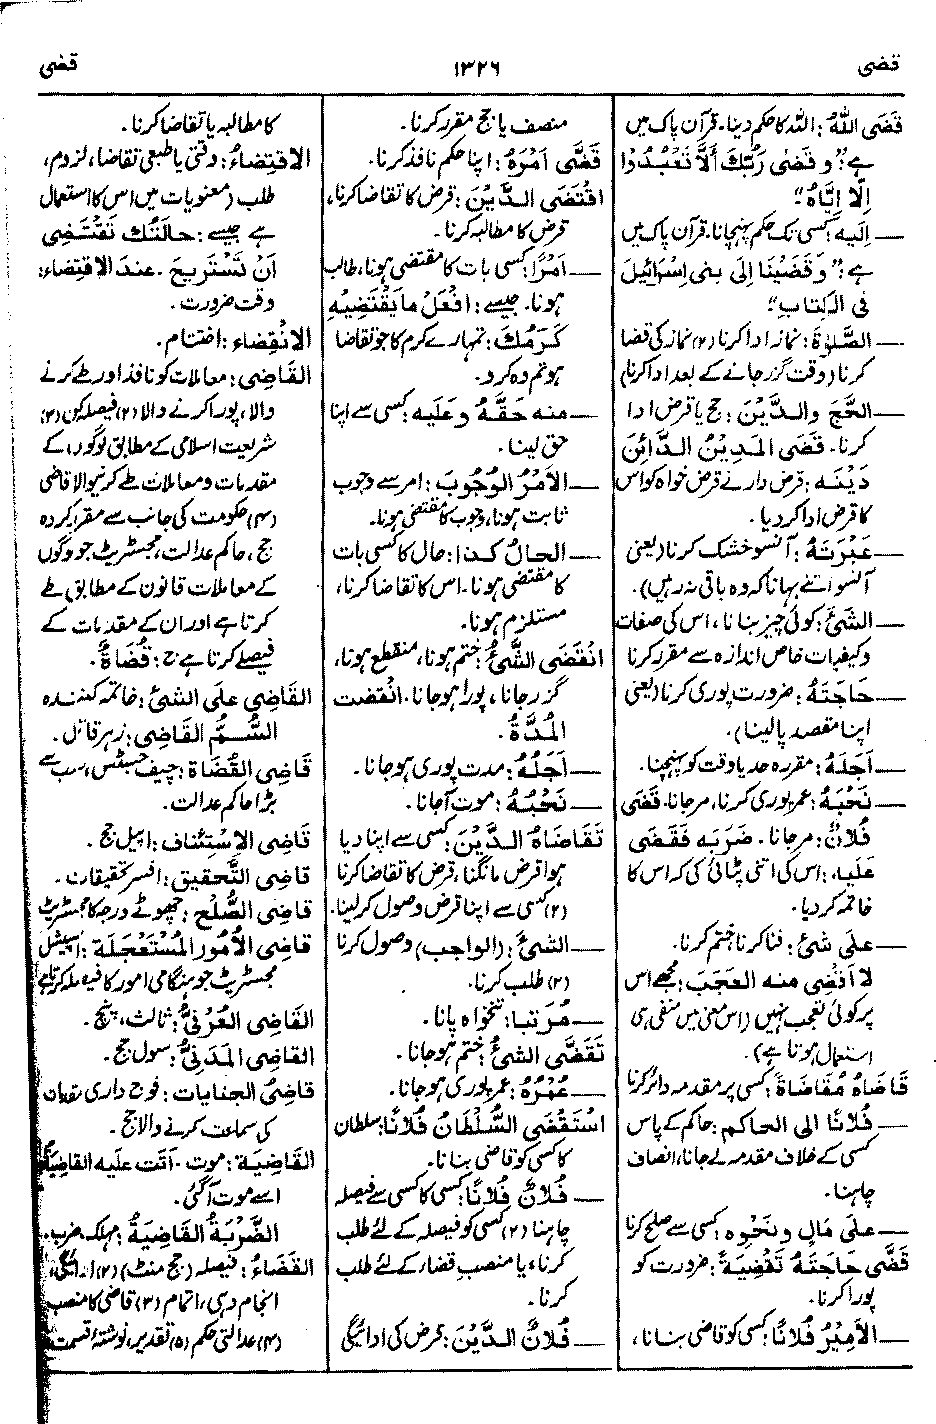 قضی
۱۳۲۶
قضی
قَضَی اللّٰهُ: اللہ کا حکم دینا۔ قرآن پاک میں
ہے: "وَقَضٰی رَبُّكَ أَلَّا تَعْبُدُوْا
إِلَّا إِيَّاهُ"
— إِلَيه: کسی تک حکم پہنچانا۔ قرآن پاک میں
ہے: "وَقَضَيْنَا إِلَى بَنِي إِسْرَائِيلَ
فِي الكِتَابِ"
— الصَّلاةَ: نماز ادا کرنا (۲) نماز کی قضا
کرنا (وقت گزر جانے کے بعد ادا کرنا)
— الحَجَّ والدَّيْنَ: حج یا قرض ادا
کرنا۔ قَضَى المَدِيْنُ الدَّائِنَ
دَيْنَه: قرض دار نے قرض خواہ کو اس
کا قرض ادا کر دیا۔
— عَبْرَتَهُ: آنسو خشک کرنا (یعنی
آنسو اتنے بہانا کہ وہ باقی نہ رہیں)۔
— الشَّئَ: کوئی چیز بنانا، اس کی صفات
و کیفیات خاص اندازہ سے مقرر کرنا
— حَاجَتَهُ: ضرورت پوری کرنا (یعنی
اپنا مقصد پا لینا)۔
— أَجَلَهُ: مقررہ حد یا وقت کو پہنچنا۔
— نَحْبَهُ: عمر پوری کرنا، مر جانا۔ قَضَى
فُلَانٌ: مر جانا۔ ضَرَبَه فَقَضَى
عَلَيه: اس کی اتنی پٹائی کی کہ اس کا
خاتمہ کر دیا۔
— على شَئٍ: فنا کرنا، ختم کرنا۔
لا أَقْضِي منه العَجَبَ: مجھے اس
پر کوئی تعجب نہیں (اس معنی میں منفی ہی
استعمال ہوتا ہے)۔
قَاضَاهُ مُقَاضَاةً: کسی پر مقدمہ دائر کرنا
— فُلَانًا الى الحاكم: حاکم کے پاس
کسی کے خلاف مقدمہ لے جانا، انصاف
چاہنا۔
— على مَالٍ ونَحْوِه: کسی سے صلح کرنا
قَضَّى حَاجَتَهُ تَقْضِيَةً: ضرورت کو
پورا کرنا۔
— الأَمِيْرُ فُلَانًا: کسی کو قاضی بنانا،
منصف یا جج مقرر کرنا۔
قَضَّى أَمْرَهُ: اپنا حکم نافذ کرنا۔
اقْتَضَى الدَّيْنَ: قرض کا تقاضا کرنا،
قرض کا مطالبہ کرنا۔
— أَمْرًا: کسی بات کا مقتضی ہونا، طالب
ہونا۔ جیسے: افْعَلْ مَا يَقْتَضِيْهِ
كَرَمُكَ: تمہارے کرم کا جو تقاضا
ہو تم وہ کرو۔
— منه حَقَّهُ وعَلَيه: کسی سے اپنا
حق لینا۔
— الأَمْرُ الوُجُوبَ: امر سے وجوب
ثابت ہونا، وجوب کا مقتضی ہونا۔
— الحالُ كذا: حال کا کسی بات
کا مقتضی ہونا۔ اس کا تقاضا کرنا،
مستلزم ہونا۔
انْقَضَى الشَّئُ: ختم ہونا، منقطع ہونا،
گزر جانا، پورا ہو جانا۔ انْقَضَت
المُدَّةُ۔
— أَجَلُهُ: مدت پوری ہو جانا۔
— نَحْبُهُ: موت آجانا۔
تَقَاضَاهُ الدَّيْنَ: کسی سے اپنا دیا
ہوا قرض مانگنا، قرض کا تقاضا کرنا
(۲) کسی سے اپنا قرض وصول کر لینا۔
— الشَّئَ: (الواجب) وصول کرنا
(۲) طلب کرنا۔
— مُرَتبا: تنخواہ پانا۔
تَقَضَّى الشئُ: ختم ہو جانا۔
— عُمْرُهُ: عمر پوری ہو جانا۔
اسْتَقْضَى السُّلْطَانُ فُلَانًا: سلطان
کا کسی کو قاضی بنانا۔
— فُلَانٌ فُلَانًا: کسی کا کسی سے فیصلہ
چاہنا (۲) کسی کو فیصلہ کے لئے طلب
کرنا، یا منصب قضاء کے لئے طلب
کرنا۔
— فُلَانٌ الدَّيْنَ: قرض کی ادائیگی
کا مطالبہ یا تقاضا کرنا۔
الاقْتِضَاءُ: وقتی یا طبعی تقاضا، لزوم،
طلب (معنویات میں اس کا استعمال
ہے جیسے: حَالَتُكَ تَقْتَضِي
أَنْ تَسْتَرِيحَ۔ عِندَ الاقْتِضَاء:
وقت ضرورت۔
الانْقِضَاء: اختتام۔
القَاضِي: معاملات کو نافذ اور طے کرنے
والا، پورا کرنے والا (۲) فیصلہ کن (۳)
شریعت اسلامی کے مطابق لوگوں کے
مقدمات و معاملات طے کرنیوالا قاضی
(۴) حکومت کی جانب سے مقرر کردہ
جج، حاکم عدالت، مجسٹریٹ جو لوگوں
کے معاملات قانون کے مطابق طے
کرتا ہے اور ان کے مقدمات کے
فیصلے کرتا ہے ج: قُضَاةٌ۔
القَاضِي عَلَى الشَّئِ: خاتمہ کنندہ
السُّمُّ القَاضِي: زہر قاتل۔
قَاضِي القُضَاة: چیف جسٹس، سب سے
بڑا حاکم عدالت۔
قَاضِي الاسْتِئْنَاف: اپیل جج۔
قاضِي التَّحْقِيق: افسر تحقیقات۔
قَاضِي الصُّلْح: چھوٹے درجہ کا مجسٹریٹ
قَاضِي الأُمُورِ المُسْتَعْجَلَة: اسپیشل
مجسٹریٹ جو ہنگامی امور کا فیصلہ کرتا ہے
القَاضِي العُرْفِيُّ: ثالث، پنچ۔
القاضِي المَدَنِيُّ: سول جج۔
قَاضِي الجنايات: فوج داری نقصان
کی سماعت کرنے والا جج۔
القَاضِيَة: موت۔ أَتَت عليه القاضِيَةُ
اسے موت آگئی۔
الضَّرْبَةُ القَاضِيَةُ: مہلک ضرب۔
القَضَاءُ: فیصلہ (جج منٹ) (۲) ادائیگی،
انجام دہی، اتمام (۳) قاضی کا منصب
(۴) عدالتی حکم (۵) تقدیر، نوشتۂ قسمت